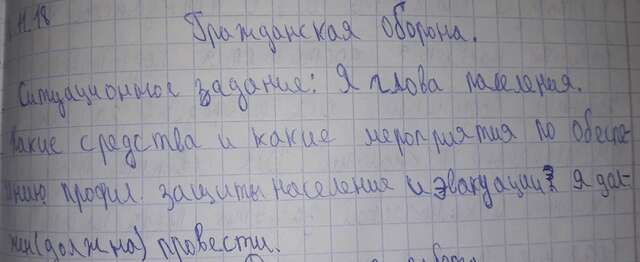 11.18
Гражданская оборона.
Ситуационное задание: Я глова поселения.
Какие средства и какие мероприятия по обеспе-
нию профил. защиты население и эвакуации я дол-
жен(должна) провести.